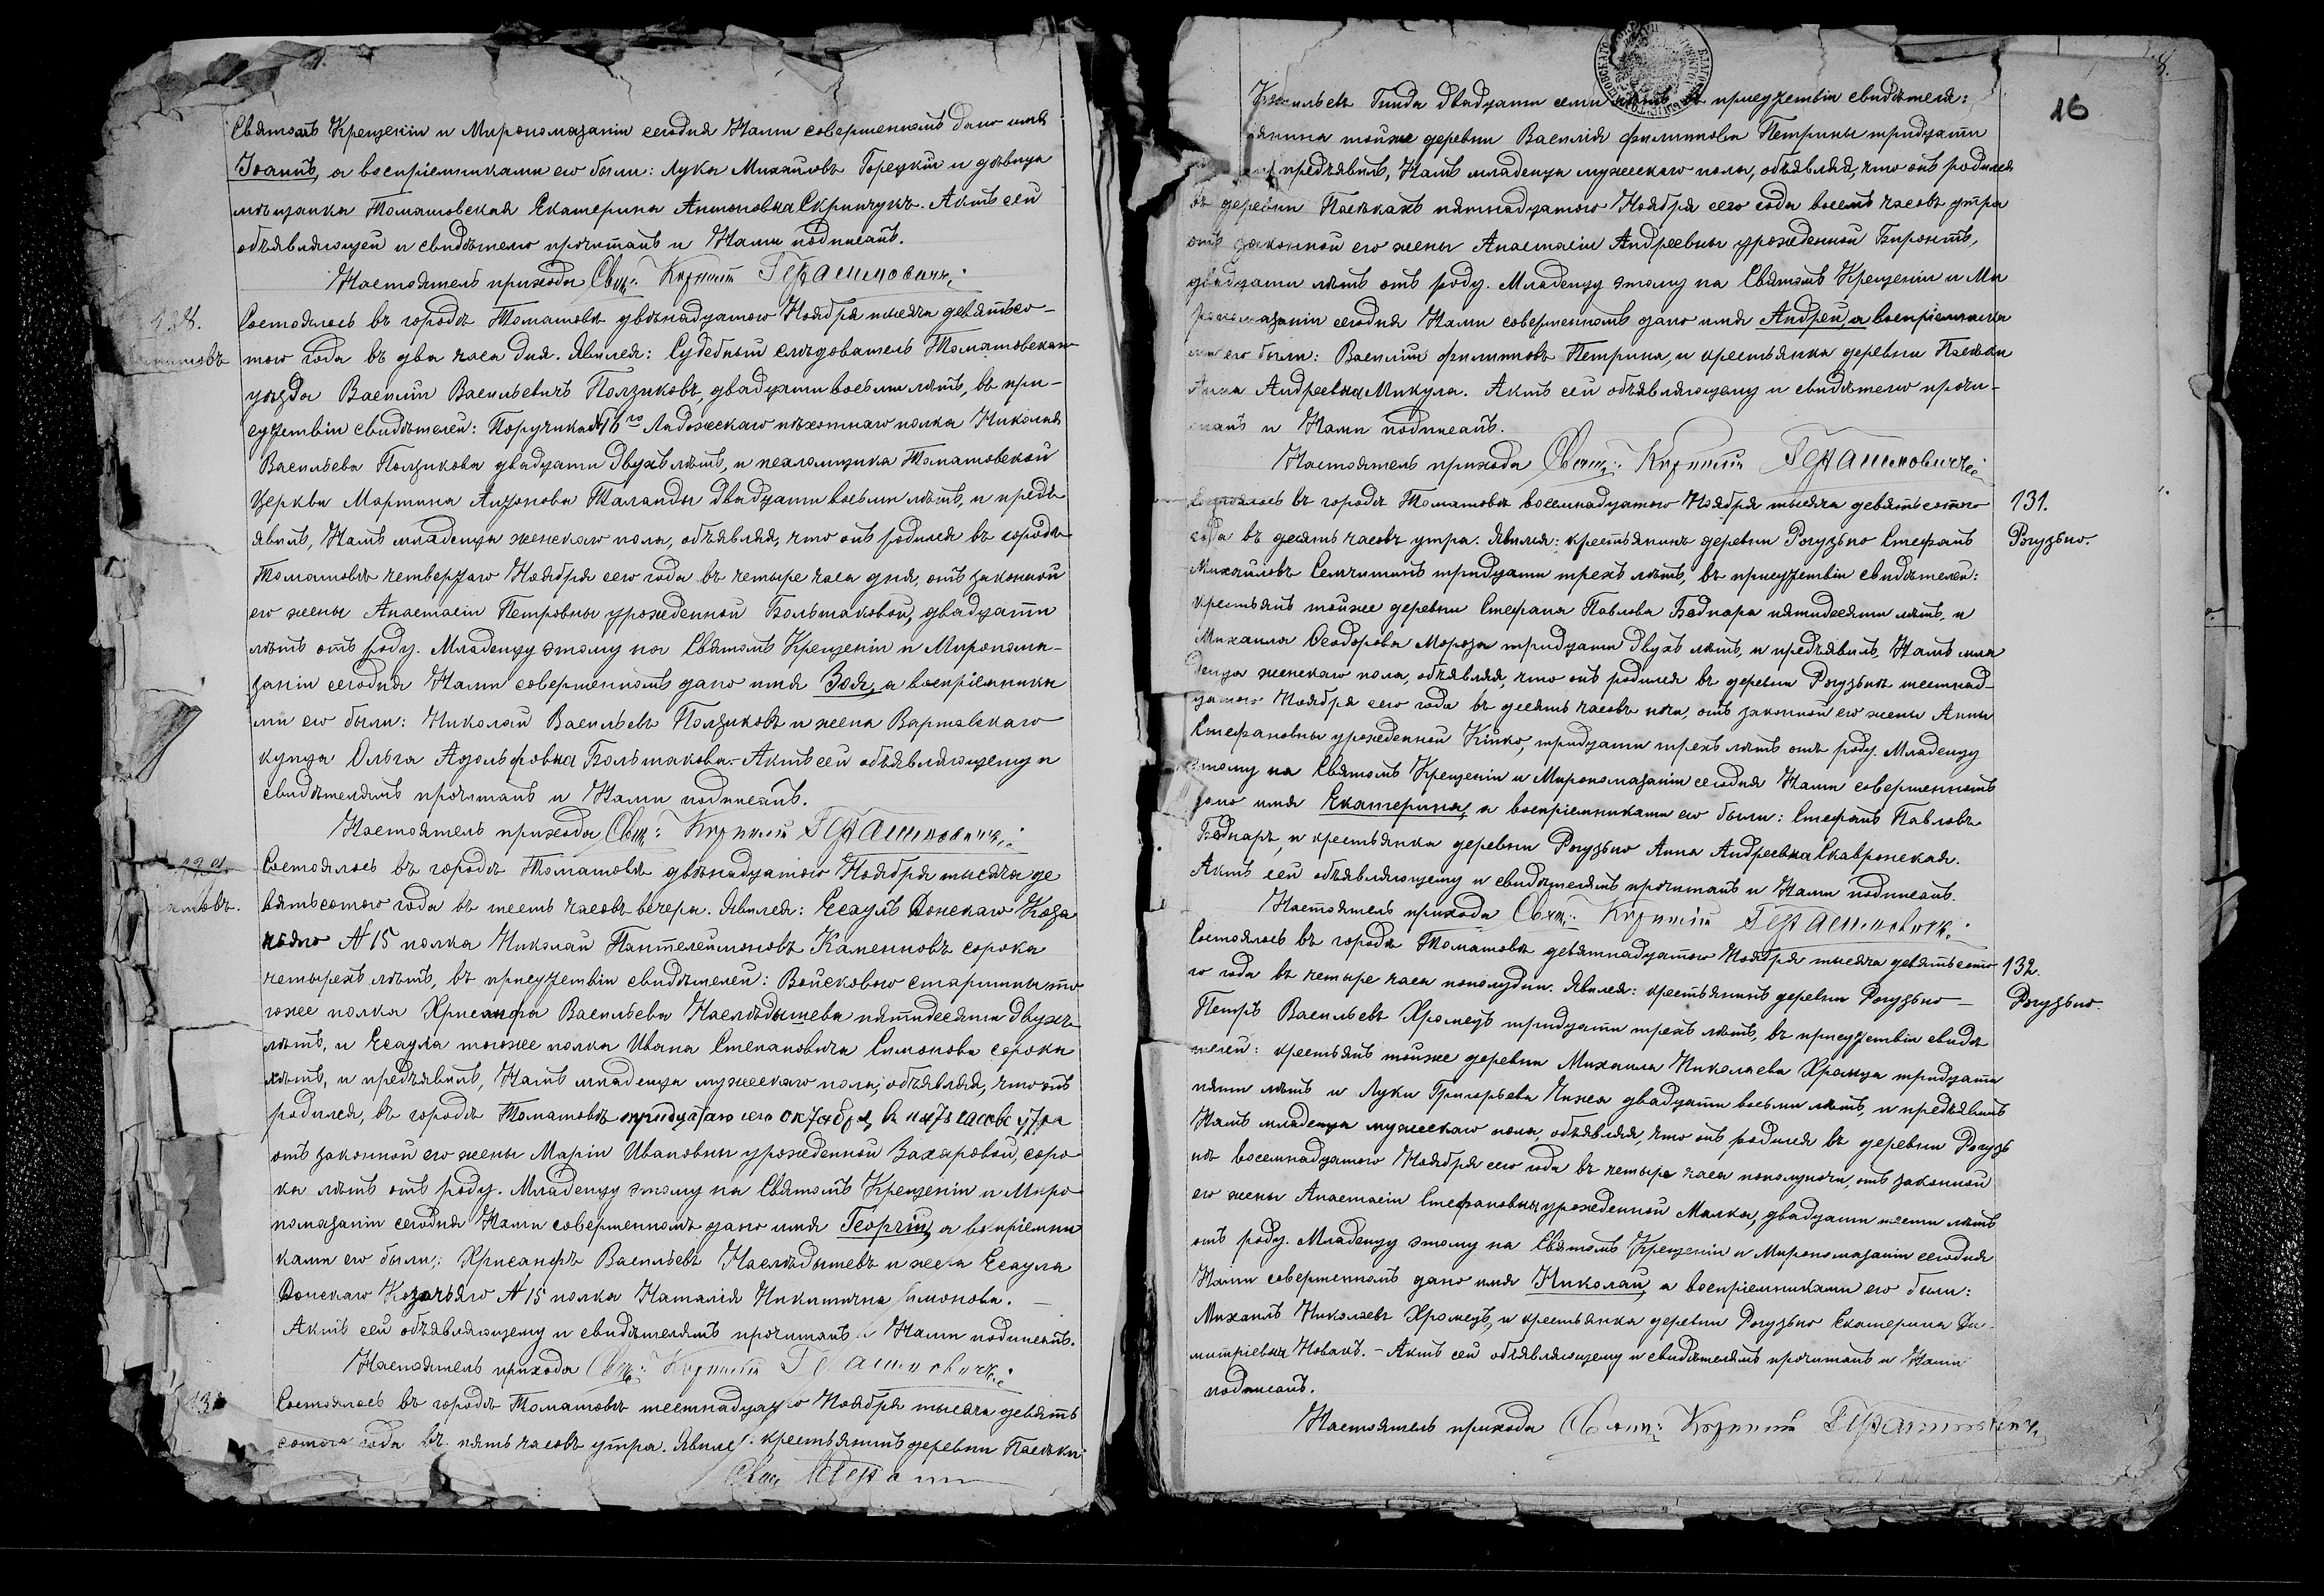 Святомъ Крещеніи и Миропомазаніи сегодня Нами совершенномъ дано имя
Іоаннъ, а воспріемниками его были: Лука Михаиловъ Горецкій и дѣвица
мѣщанка Томашовская Екатерина Антоновна Скрипчукъ. Актъ сей
объявляющей и свидѣтелю прочитанъ и Нами подписанъ.
Настоятель прихода Свящ: Корнилій Герасимовичъ
128.
Состоялось въ городѣ Томашовѣ двѣнадцатого Ноября тысяча девятьсо-
Томашовъ
таго года въ два часа дня. Явился: Судебный слѣдователь Томашовскаго
уѣзда Василій Васильевичъ Ползиковъ, двадцати восьми лѣтъ, въ при-
сутствіи свидѣтелей: Поручика 16го Ладожскаго пѣхотнаго полка Николая
Васильева Ползикова двадцати двухъ лѣтъ, и псаломщика Томашовской
Церкви Мартина Таланды двадцати восьми лѣтъ, и предъ
явилъ, Намъ младенца женскаго пола, объявляя, что онъ родился въ городѣ
Томашовѣ четвертаго Ноября сего года въ четыре часа дня, отъ законной
его жены Анастасіи Петровны урожденной Большаковой, двадцати
лѣтъ отъ роду. Младенцу этому на Святомъ Крещеніи и Миропома-
заніи сегодня Нами совершенномъ дано имя Зоя, а воспріемника
ми его были: Николай Васильевъ Ползиковъ и жена Варшавскаго
купца Ольга Адольфовна Большакова. - Актъ сей объявляющему и
свидѣтелямъ прочитанъ и Нами подписанъ.
Настоятель прихода Свящ: Корнилій Герасимовичъ
129.
Состоялось въ городѣ Томашовѣ двѣнадцатого Ноября тысяча де
вятьсотого года въ шесть часовъ вечера. Явился: Есаулъ Донскаго Каза
чьяго № 15 полка Николай Пантелеимоновъ Каменновъ сорока
четырехъ лѣтъ, въ присутствіи свидѣтелей: Войсковаго старшины то
гоже полка Хрисанфа Васильева Наслѣдышева пятидесяти двухъ
лѣтъ, и Есаула тогоже полка Ивана Степановича Симонова сорока
лѣтъ, и предъявилъ, Намъ младенца мужескаго пола, объявляя, что онъ
родился, въ городѣ Томашовѣ тридцатаго сего октября, въ пять часовъ утра
отъ законной его жены Маріи Ивановны урожденной Захаровой, соро
ка лѣтъ отъ роду. Младенцу этому на Святомъ Крещеніи и Миро
помазаніи сегодня Нами совершенномъ дано имя Георгій, а воспріемни
ками его были: Хрисанфъ Васильевъ Наслѣдышевъ и жена Есаула
Донскаго Козачьяго № 15 полка Наталія Никитична Симонова. -
Актъ сей объявляющему и свидѣтелямъ прочитанъ и Нами подписанъ.
Настоятель прихода Свящ: Корнилій Герасимовичъ
130
Состоялось въ городѣ Томашовѣ шестнадцатаго Ноября тысяча девять
сотого года въ пять часовъ утра. Явился: крестьянинъ деревни Пасѣки
16
Васильевъ Гинда двадцати семи лѣтъ въ присутствіи свидѣтеля:
янина тойже деревни Василія Филипова Петрины тридцати
предъявилъ, Намъ младенца мужескаго пола, объявляя, что онъ родился
въ деревни Пасѣкахъ пятнадцатого Ноября сего года восемь часовъ утра
отъ законной его жены Анастасіи Андреевны урожденной Биронтъ,
двадцати лѣтъ отъ роду. Младенцу этому на Святомъ Крещеніи и Ми
ропомазаніи сегодня Нами совершенномъ дано имя Андрей, а воспріемника
ми его были: Василій Филиповъ Петрина, и крестьянка деревни Пасѣки
Анна Андреевна Микула. Актъ сей объявляющему и свидѣтелю прочи-
танъ и Нами подписанъ.
Настоятель прихода Свящ: Корнилій Герасимовичъ
Состоялось въ городѣ Томашовѣ восемнадцатого Ноября тысяча девятьсотаго
131.
года въ десять часовъ утра. Явился: крестьянинъ деревни Рогузьно Стефанъ
Рогузьно.
Михайловъ Семчишинъ тридцати трехъ лѣтъ, въ присутствіи свидѣтелей:
крестьянъ тойже деревни Стефана Павлова Боднара пятидесяти лѣтъ, и
Михаила Ѳеодорова Мороза тридцати двухъ лѣтъ, и предъявилъ, Намъ мла
денца женскаго пола, объявляя, что онъ родился въ деревни Рогузьнѣ шестнад-
цатого Ноября сего года въ десять часовъ ночи, отъ законной его жены Анны
Стефановны урожденной Кішко, тридцати трехъ лѣтъ отъ роду. Младенцу
этому на Святомъ Крещеніи и Миропомазаніи сегодня Нами совершенномъ
дано имя Екатерина, а воспріемниками его были: Стефанъ Павловъ
Боднаръ, и крестьянка деревни Рогузьно Анна Андреевна Скавронская.
Актъ сей объявляющему и свидѣтелямъ прочитанъ и Нами подписанъ.
Настоятель прихода Свящ: Корнилій Герасимовичъ
Состоялось въ городѣ Томашовѣ девятнадцатого Ноября тысяча девятьсота
132.
го года въ четыре часа пополудни. Явился: крестьянинъ деревни Рогузьно -
Рогузьно.
Петръ Васильевъ Хромецъ тридцати трехъ лѣтъ, въ присутствіи свидѣ
телей: крестьянъ тойже деревни Михаила Николаева Хромца тридцати
пяти лѣтъ и Луки Григорьева двадцати восьми лѣтъ, и предъявилъ
Намъ младенца мужескаго пола, объявляя, что онъ родился въ деревни Рогузь
нѣ восемнадцатого Ноября сего года въ четыре часа пополуночи, отъ законной
его жены Анастасіи Стефановны урожденной Малка, двадцати шести лѣтъ
отъ роду. Младенцу этому на Святомъ Крещеніи и Миропомазаніи сегодня
Нами совершенномъ дано имя Николай, а воспріемниками его были:
Михаилъ Николаевъ Хромецъ, и крестьянка деревни Рогузьно Екатерина Ди-
митріевна Новакъ. - Актъ сей объявляющему и свидѣтелямъ прочитанъ и Нами
подписанъ.
Настоятель прихода Свящ: Корнилій Герасимовичъ